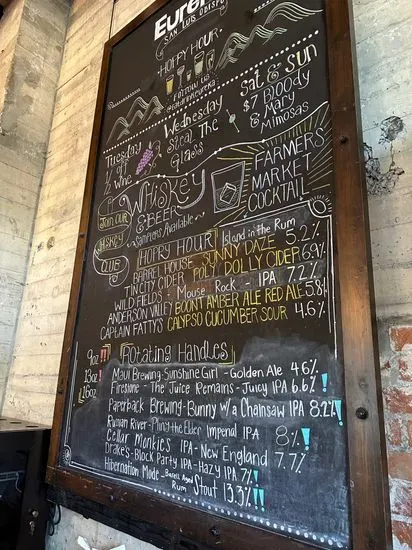 Eure
SAN LUIS OBISPO
HOPPY HOUR
FOLLOW US
Tuesday
1/2 off
Wine
Wednesday
Steal The
Glass
Sat & Sun
$7 Bloody
Mary
&
Mimosas
JOIN OUR
WHISKEY
CLUB
WHISKEY
& BEER
Samplers Available
FARMERS
MARKET
COCKTAIL
HOPPY HOUR
Island in the Rum
BARREL HOUSE SUNNY DAZE 5.2%
TIN CITY CIDER POLY DOLLY CIDER 6.9%
WILD FIELDS - Mouse Rock - IPA 7.2%
ANDERSON VALLEY BOONT AMBER ALE RED ALE 5.8%
CAPTAIN FATTY'S CALYPSO CUCUMBER SOUR 4.6%
9oz !!
13oz !
16oz
Rotating Handles
Maui Brewing-Sunshine Girl - Golden Ale 4.6%
Firestone - The Juice Remains - Juicy IPA 6.6% !
Paperback Brewing-Bunny w/a Chainsaw IPA 8.2% !
Russian River - Pliny the Elder Imperial IPA 8% !
Cellar Monkies IPA - New England 7.7%
Drake's - Block Party IPA - Hazy IPA 7% !
Hibernation Mode - Barrel Aged Rum Stout 13.3% !!